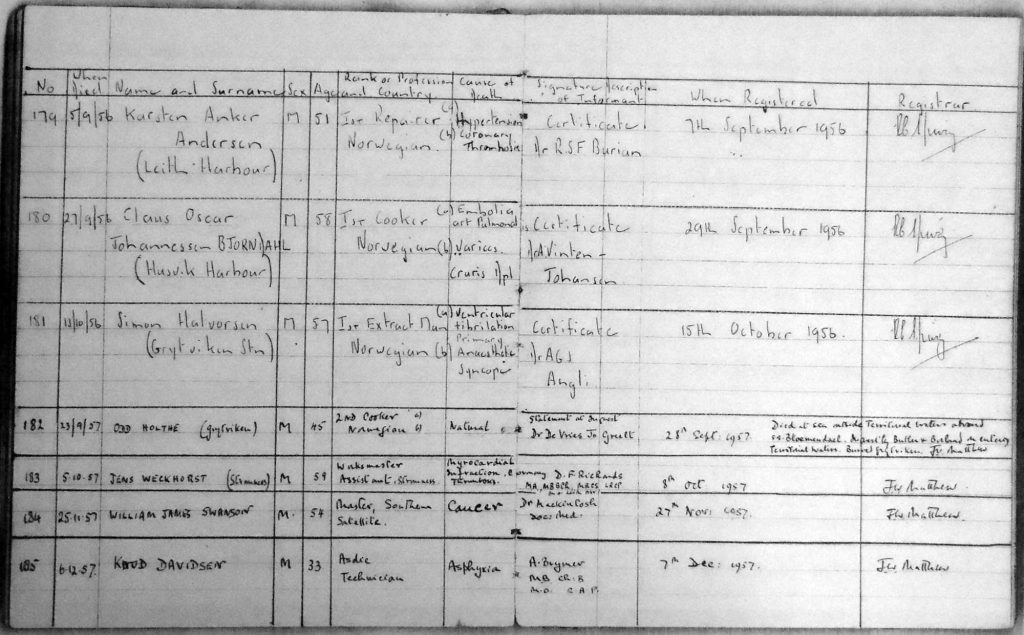 No When Died Name and Surname Sex Age Rank or Profession and Country Cause of Death Signature Description of Informant When Registered Registrar
179 5/9/56 Karsten Anker M 51 1st Repairer (a) Hypertension Certificate 7th September 1956
Andersen Norwegian. (b) Coronary Dr R.S.F Burian
(Leith Harbour) Thrombosis
180 27/9/56 Claus Oscar M 58 1st Cooker (a) Embolia Certificate 29th September 1956
Johannessen BJORNDAHL Norwegian art Pulmonalis Dr A Vinten -
(Husvik Harbour) (b) Varices Johansen
Cruris
181 13/10/56 Simon Halvorsen M 57 1st Extract Man (a) Ventricular Certificate 15th October 1956.
(Grytviken Stn) Norwegian fibrilation Dr AGS
(b) Primary Angli
Anaesthetic
Syncope
182 23/9/57 ODD HOLTHE (Grytviken) M 45 2ND Cooker a) Natural Statement as Inquest 28th Sept. 1957 Died at sea outside Territorial Waters aboard
Norwegian b) Dr De Vries ss. Bloemendael.
Territorial Waters. Buried Grytviken. Matthew
183 5.10.57 JENS WECKHORST (Stromness) M 59 Worksmaster Myrocardial D. F Richards 8th Oct 1957 Matthew
Assistant. Stromness Infraction. Coronary MA, MB BCh, MRCS LRCP
Thrombosis.
184 25.11.57 WILLIAM JAMES SWANSON M. 54 Master, Southern Cancer Dr Mackintosh 27th Nov: 1957. Matthew
Satellite. Docs. Med.
185 6.12.57. KNUD DAVIDSEN M 33 Asdic Asphyxia A. Brymer 7th Dec: 1957. Matthew
Technician MB Ch.B
M.O.